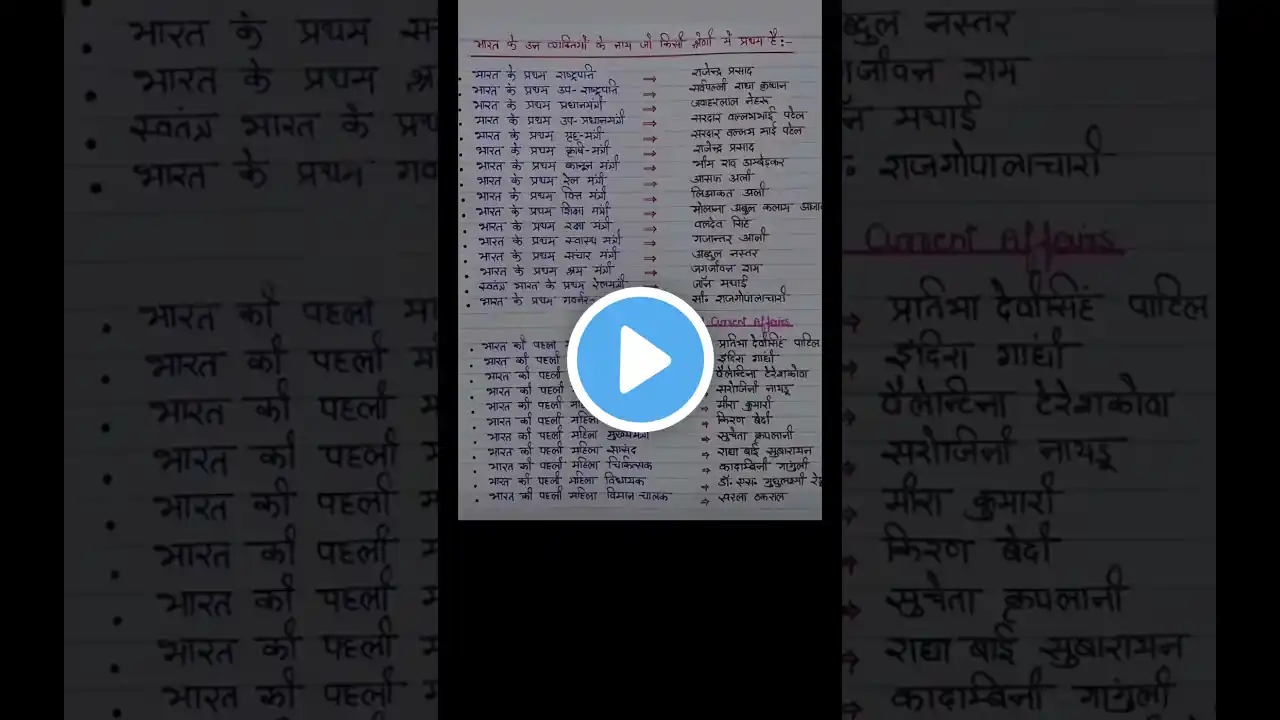 भारत के उन व्यक्तियों के नाम जो किसी श्रेणी में प्रथम है:-
भारत के प्रथम राष्ट्रपति ⇒ राजेन्द्र प्रसाद
भारत के प्रथम उप-राष्ट्रपति ⇒ सर्वपल्ली राधा कृष्णन
भारत के प्रथम प्रधानमंत्री ⇒ जवाहरलाल नेहरू
भारत के प्रथम उप-प्रधानमंत्री ⇒ सरदार वल्लभभाई पटेल
भारत के प्रथम गृह-मंत्री ⇒ सरदार वल्लभ भाई पटेल
भारत के प्रथम कृषि-मंत्री ⇒ राजेन्द्र प्रसाद
भारत के प्रथम कानून मंत्री ⇒ भीम राव अम्बेडकर
भारत के प्रथम रेल मंत्री ⇒ आसफ अली
भारत के प्रथम वित्त मंत्री ⇒ लिआकत अली
भारत के प्रथम शिक्षा मंत्री ⇒ मौलाना अबुल कलाम
भारत के प्रथम रक्षा मंत्री ⇒ वलदेव सिंह
भारत के प्रथम स्वास्थ मंत्री ⇒ गजान्तर अली
भारत के प्रथम संचार मंत्री ⇒ अब्दुल नस्तर
भारत के प्रथम श्रम मंत्री ⇒ जगजीवन राम
स्वतंत्र भारत के प्रथम रेलमंत्री ⇒ जॉन मथाई
भारत के प्रथम गवर्नर- सी॰ राजगोपालाचारी
Current Affairs
भारत की पहली प्रतिभा देवीसिंह पाटिल
भारत की पहली इंदिरा गाँधी
भारत की पहली वैलेन्टिना टेरेशकोवा
भारत की पहली सरोजिनी नायडू
भारत की पहली → मीरा कुमारी
भारत की पहली महिला → किरण बेदी
भारत की पहली महिला मुख्यमंत्री → सुचेता कृपलानी
भारत की पहली महिला सांसद → राधा बाई सुबारायन
भारत की पहली महिला चिकित्सक → कादाम्बिनी गांगुली
भारत की पहली महिला विधायक → डॉ॰ एस॰ मुथुलक्ष्मी
भारत की पहली महिला विमान-चालक → सरला ठकराल